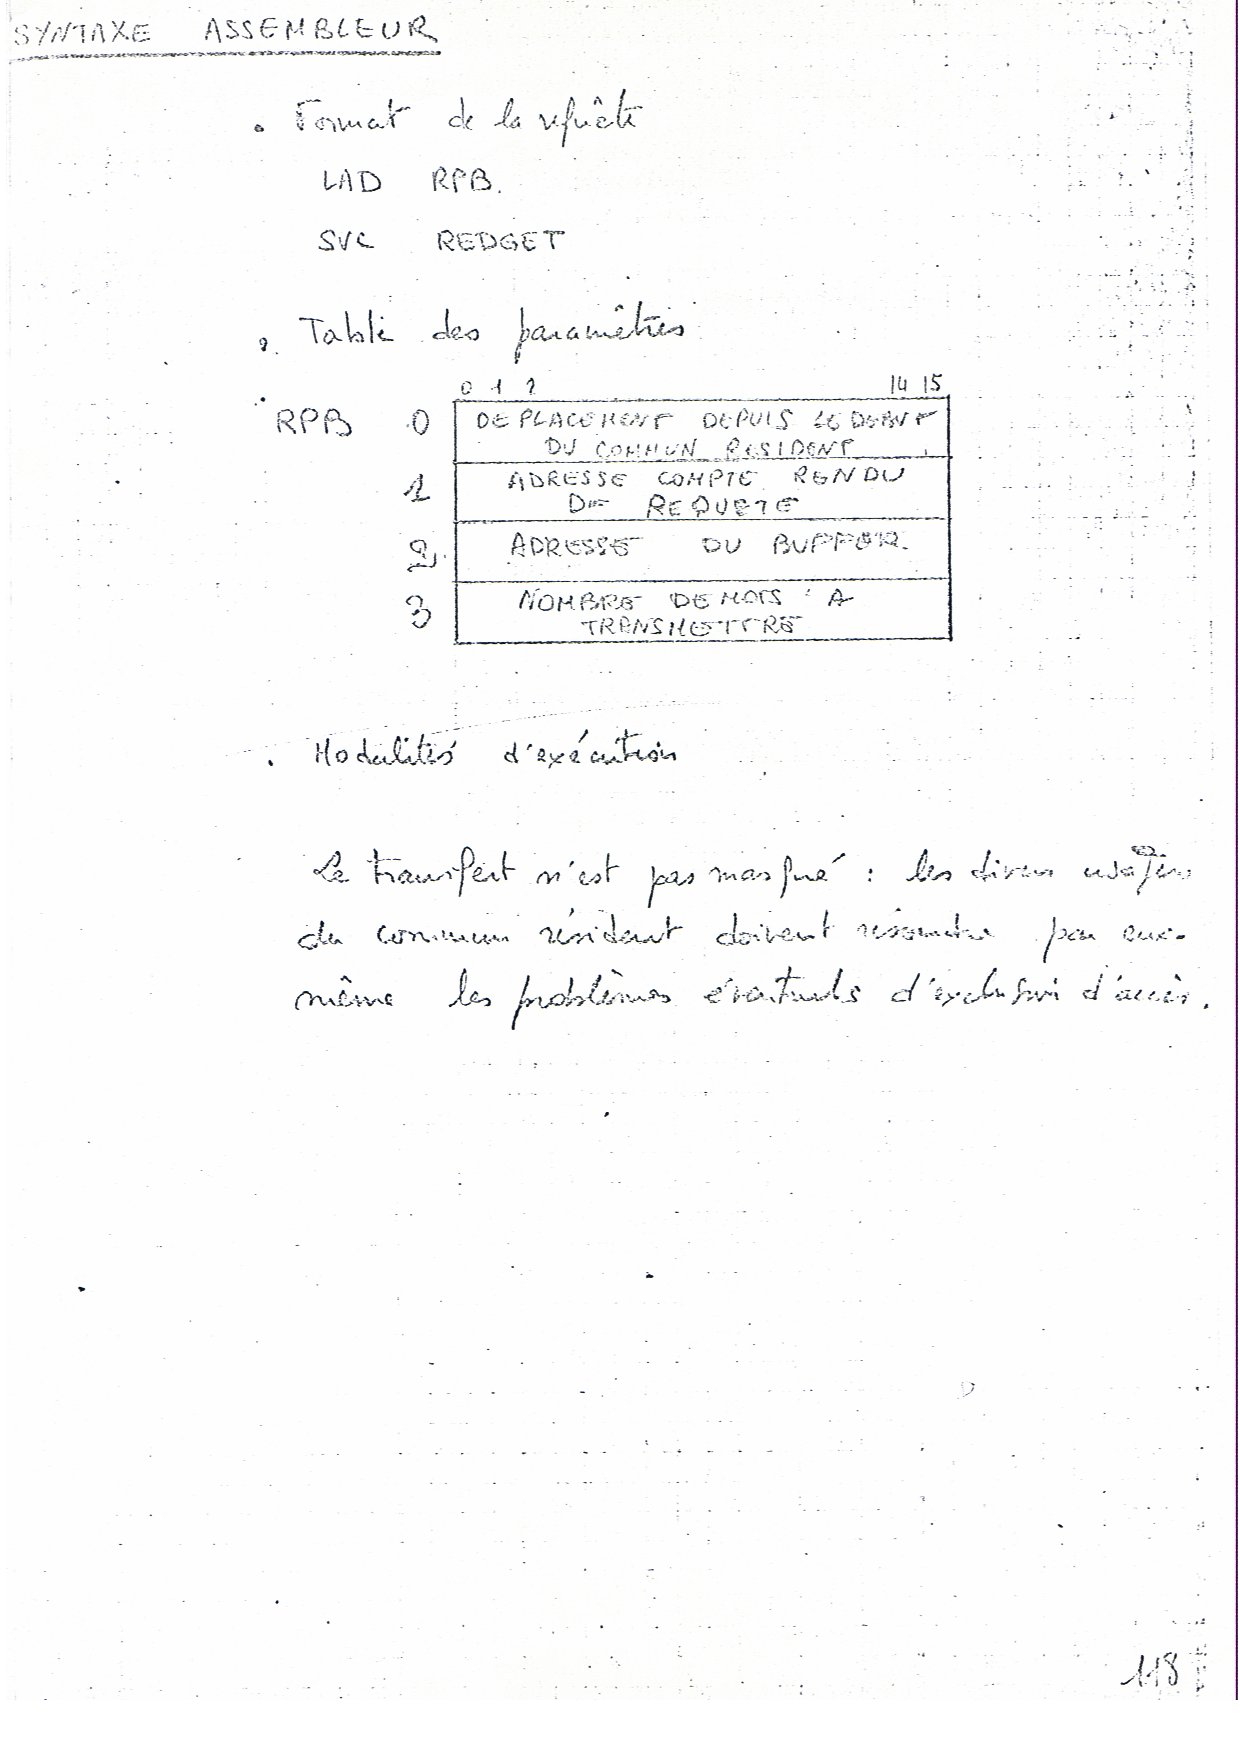 SYNTAXE ASSEMBLEUR
. Format de la requête
LAD RPB.
SVC REDGET
. Table des paramêtres
0 1 2 14 15
RPB 0 DEPLACEMENT DEPUIS LE DEBUT
DU COMMUN RESIDENT
1 ADRESSE COMPTE RENDU
DE REQUETE
2 ADRESSE DU BUFFER.
3 NOMBRE DE MOTS A
TRANSMETTRE
. Modalités d'exécution
Le transfert n'est pas masqué : les divers usagers
du commun résident doivent résoudre par eux-
même les problèmes éventuels d'exclusivi d'accès.
118